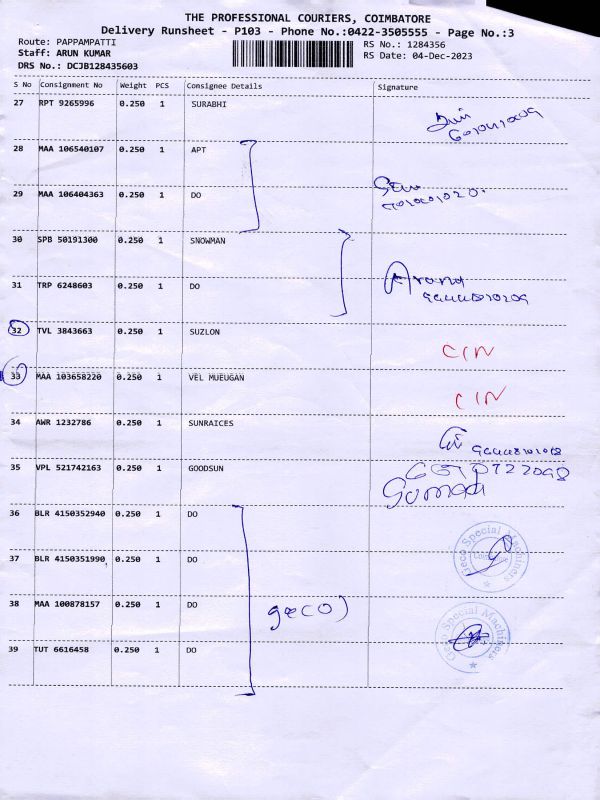 THE PROFESSIONAL COURIERS, COIMBATORE
Delivery Runsheet - P103 - Phone No.:0422-3505555 - Page No.:3
Route: PAPPAMPATTI
Staff: ARUN KUMAR
DRS No.: DCJB128435603
RS No.: 1284356
RS Date: 04-Dec-2023
S No Consignment No Weight PCS Consignee Details Signature
27 RPT 9265996 0.250 1 SURABHI
28 MAA 106540107 0.250 1 APT
29 MAA 106404363 0.250 1 DO
30 SPB 50191300 0.250 1 SNOWMAN
31 TRP 6248603 0.250 1 DO
32 TVL 3843663 0.250 1 SUZLON CIN
33 MAA 103658220 0.250 1 VEL MUEUGAN CIN
34 AWR 1232786 0.250 1 SUNRAICES
35 VPL 521742163 0.250 1 GOODSUN
36 BLR 4150352940 0.250 1 DO
37 BLR 4150351990 0.250 1 DO
38 MAA 100878157 0.250 1 DO
39 TUT 6616458 0.250 1 DO
geco
Geco Special Machiners
Geco Special Machiners